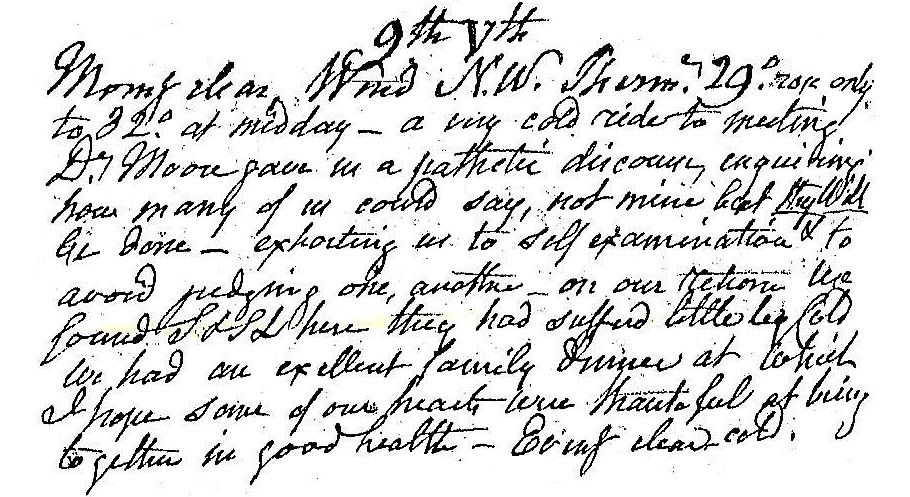 9th 7th
Morng clear, Wind N.W. Thermr. 29° rose only
to 32° at midday – a very cold ride to meeting
Dr. Moore gave us a pathetic discourse, enquiring
how many of us could say, not mine but thy Will
be done – exhorting us to self examination & to
avoid judging one, another – on our return we
found S & SL here they had sufferd little by Cold
we had an excellent family dinner at which
I hope some of our hearts were thankful at being
together in good health – Eving clear cold.